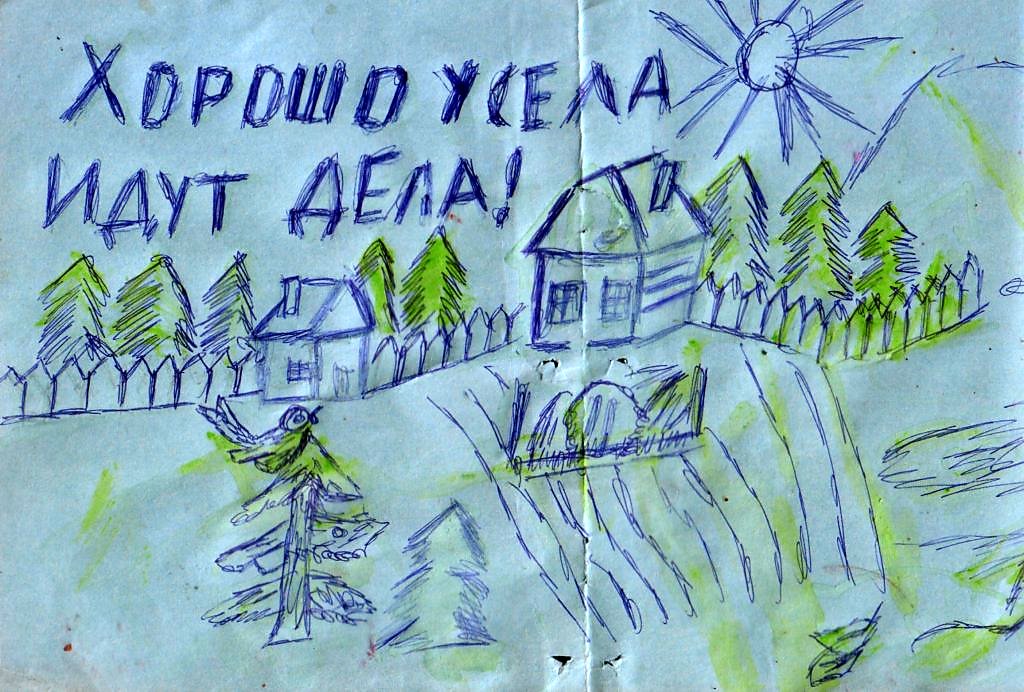 ХОРОШО УСЕЛА
ИДУТ ДЕЛА!